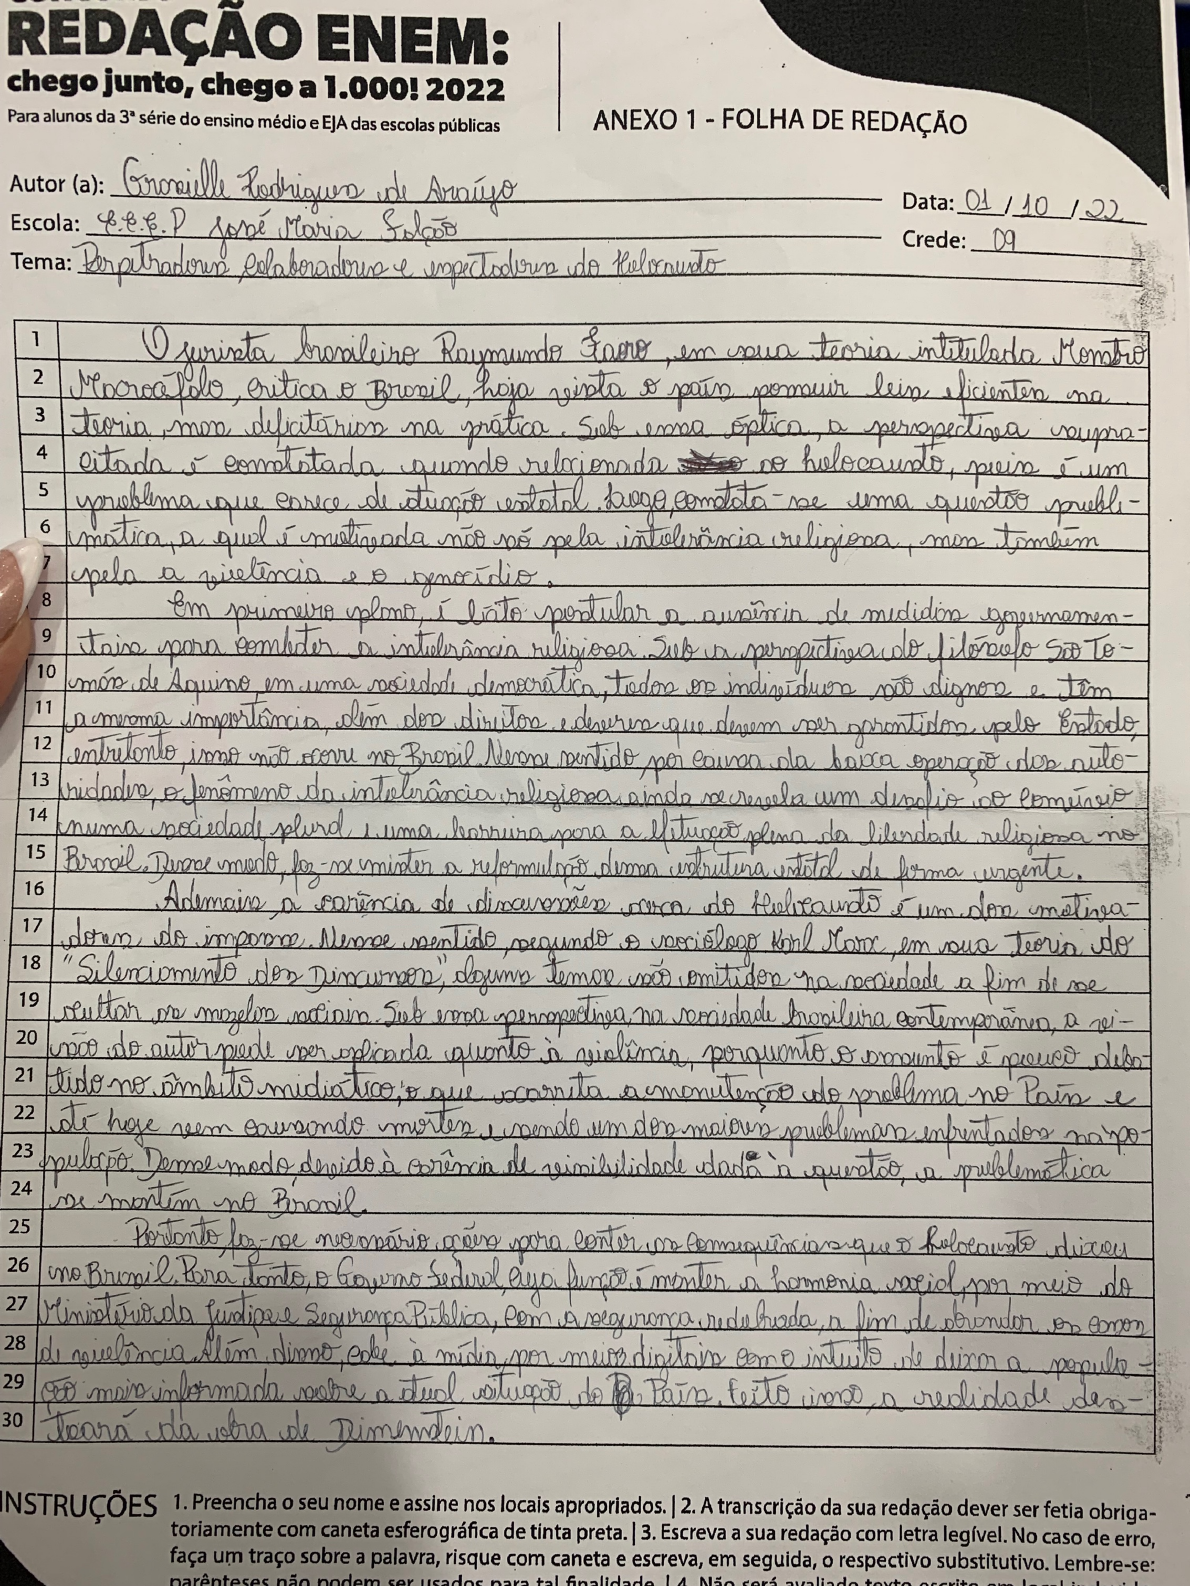 REDAÇÃO ENEM:
chego junto, chego a 1.000! 2022
Para alunos da 3ª série do ensino médio e EJA das escolas públicas
ANEXO 1 - FOLHA DE REDAÇÃO
Autor (a): Grasielle Rodrigues de Araújo
Data: 01 / 10 / 22
Escola: E.E.E.P José Maria Falcão
Crede: 09
Tema: Perpitradores, colaboradores e expectadores do Holocausto
1 O jurista brasileiro Raymundo Faoro, em sua teoria intitulada Monstro
2 Macroáfolo, critica o Brasil, haja vista o país possuir leis eficientes na
3 teoria, mas deficitários na prática. Sob essa óptica, a perspectiva supra-
4 citada é constatada quando relacionada ao holocausto, pois é um
5 problema que carece de atuação estatal. Logo, constata-se uma questão probli-
6 mática, a qual é motivada não só pela intolerância religiosa, mas também
7 pela a violência e o genocídio.
8 Em primeiro plano, é lícito postular a ausência de medidas governamen-
9 tais para combater a intolerância religiosa. Sob a perspectiva do filósofo São To-
10 más de Aquino, em uma sociedade democrática, todos os indivíduos são dignos e têm
11 a mesma importância, além dos direitos e deveres que devem ser garantidos pelo Estado,
12 entretanto, isso não ocorre no Brasil. Nesse sentido, por causa da baixa operação das auto-
13 ridades, o fenômeno da intolerância religiosa ainda se revela um desafio ao convívio
14 numa sociedade plural e uma barreira para a efetuação plena da liberdade religiosa no
15 Brasil. Desse modo, faz-se mister a reformulação dessa estrutura estatal de forma urgente.
16 Ademais, a carência de discussões acerca do Holocausto é um dos motiva-
17 dores do impasse. Nesse sentido, segundo o sociólogo Karl Marx, em sua teoria do
18 "Silenciamento dos Discursos", alguns temas são omitidos na sociedade a fim de se
19 ocultar as mazelas sociais. Sob essa perspectiva, na sociedade brasileira contemporânea, a vi-
20 são do autor pode ser aplicada quanto à violência, porquanto o assunto é pouco deba-
21 tido no âmbito midiático, o que acarreta a manutenção do problema no País e
22 até hoje vem causando mortes e sendo um dos maiores problemas enfrentados na po-
23 pulação. Desse modo, devido à carência de visibilidade dada à questão, a problemática
24 se mantém no Brasil.
25 Portanto, faz-se necessário ações para conter as consequências que o holocausto deixou
26 no Brasil. Para tanto, o Governo Federal, cuja função é manter a harmonia social, por meio do
27 Ministério da Justiça e Segurança Pública, com a segurança redobrada, a fim de abrandar os casos
28 de violência. Além disso, cabe à mídia, por meios digitais com o intuito de deixar a popula-
29 ção mais informada sobre a atual situação do País. Feito isso, a realidade des-
30 toará da obra de Dimenstein.
INSTRUÇÕES 1. Preencha o seu nome e assine nos locais apropriados. | 2. A transcrição da sua redação dever ser fetia obriga-
toriamente com caneta esferográfica de tinta preta. | 3. Escreva a sua redação com letra legível. No caso de erro,
faça um traço sobre a palavra, risque com caneta e escreva, em seguida, o respectivo substitutivo. Lembre-se:
parênteses não podem ser usados para tal finalidade. | 4. Não será avaliado texto escrito em local